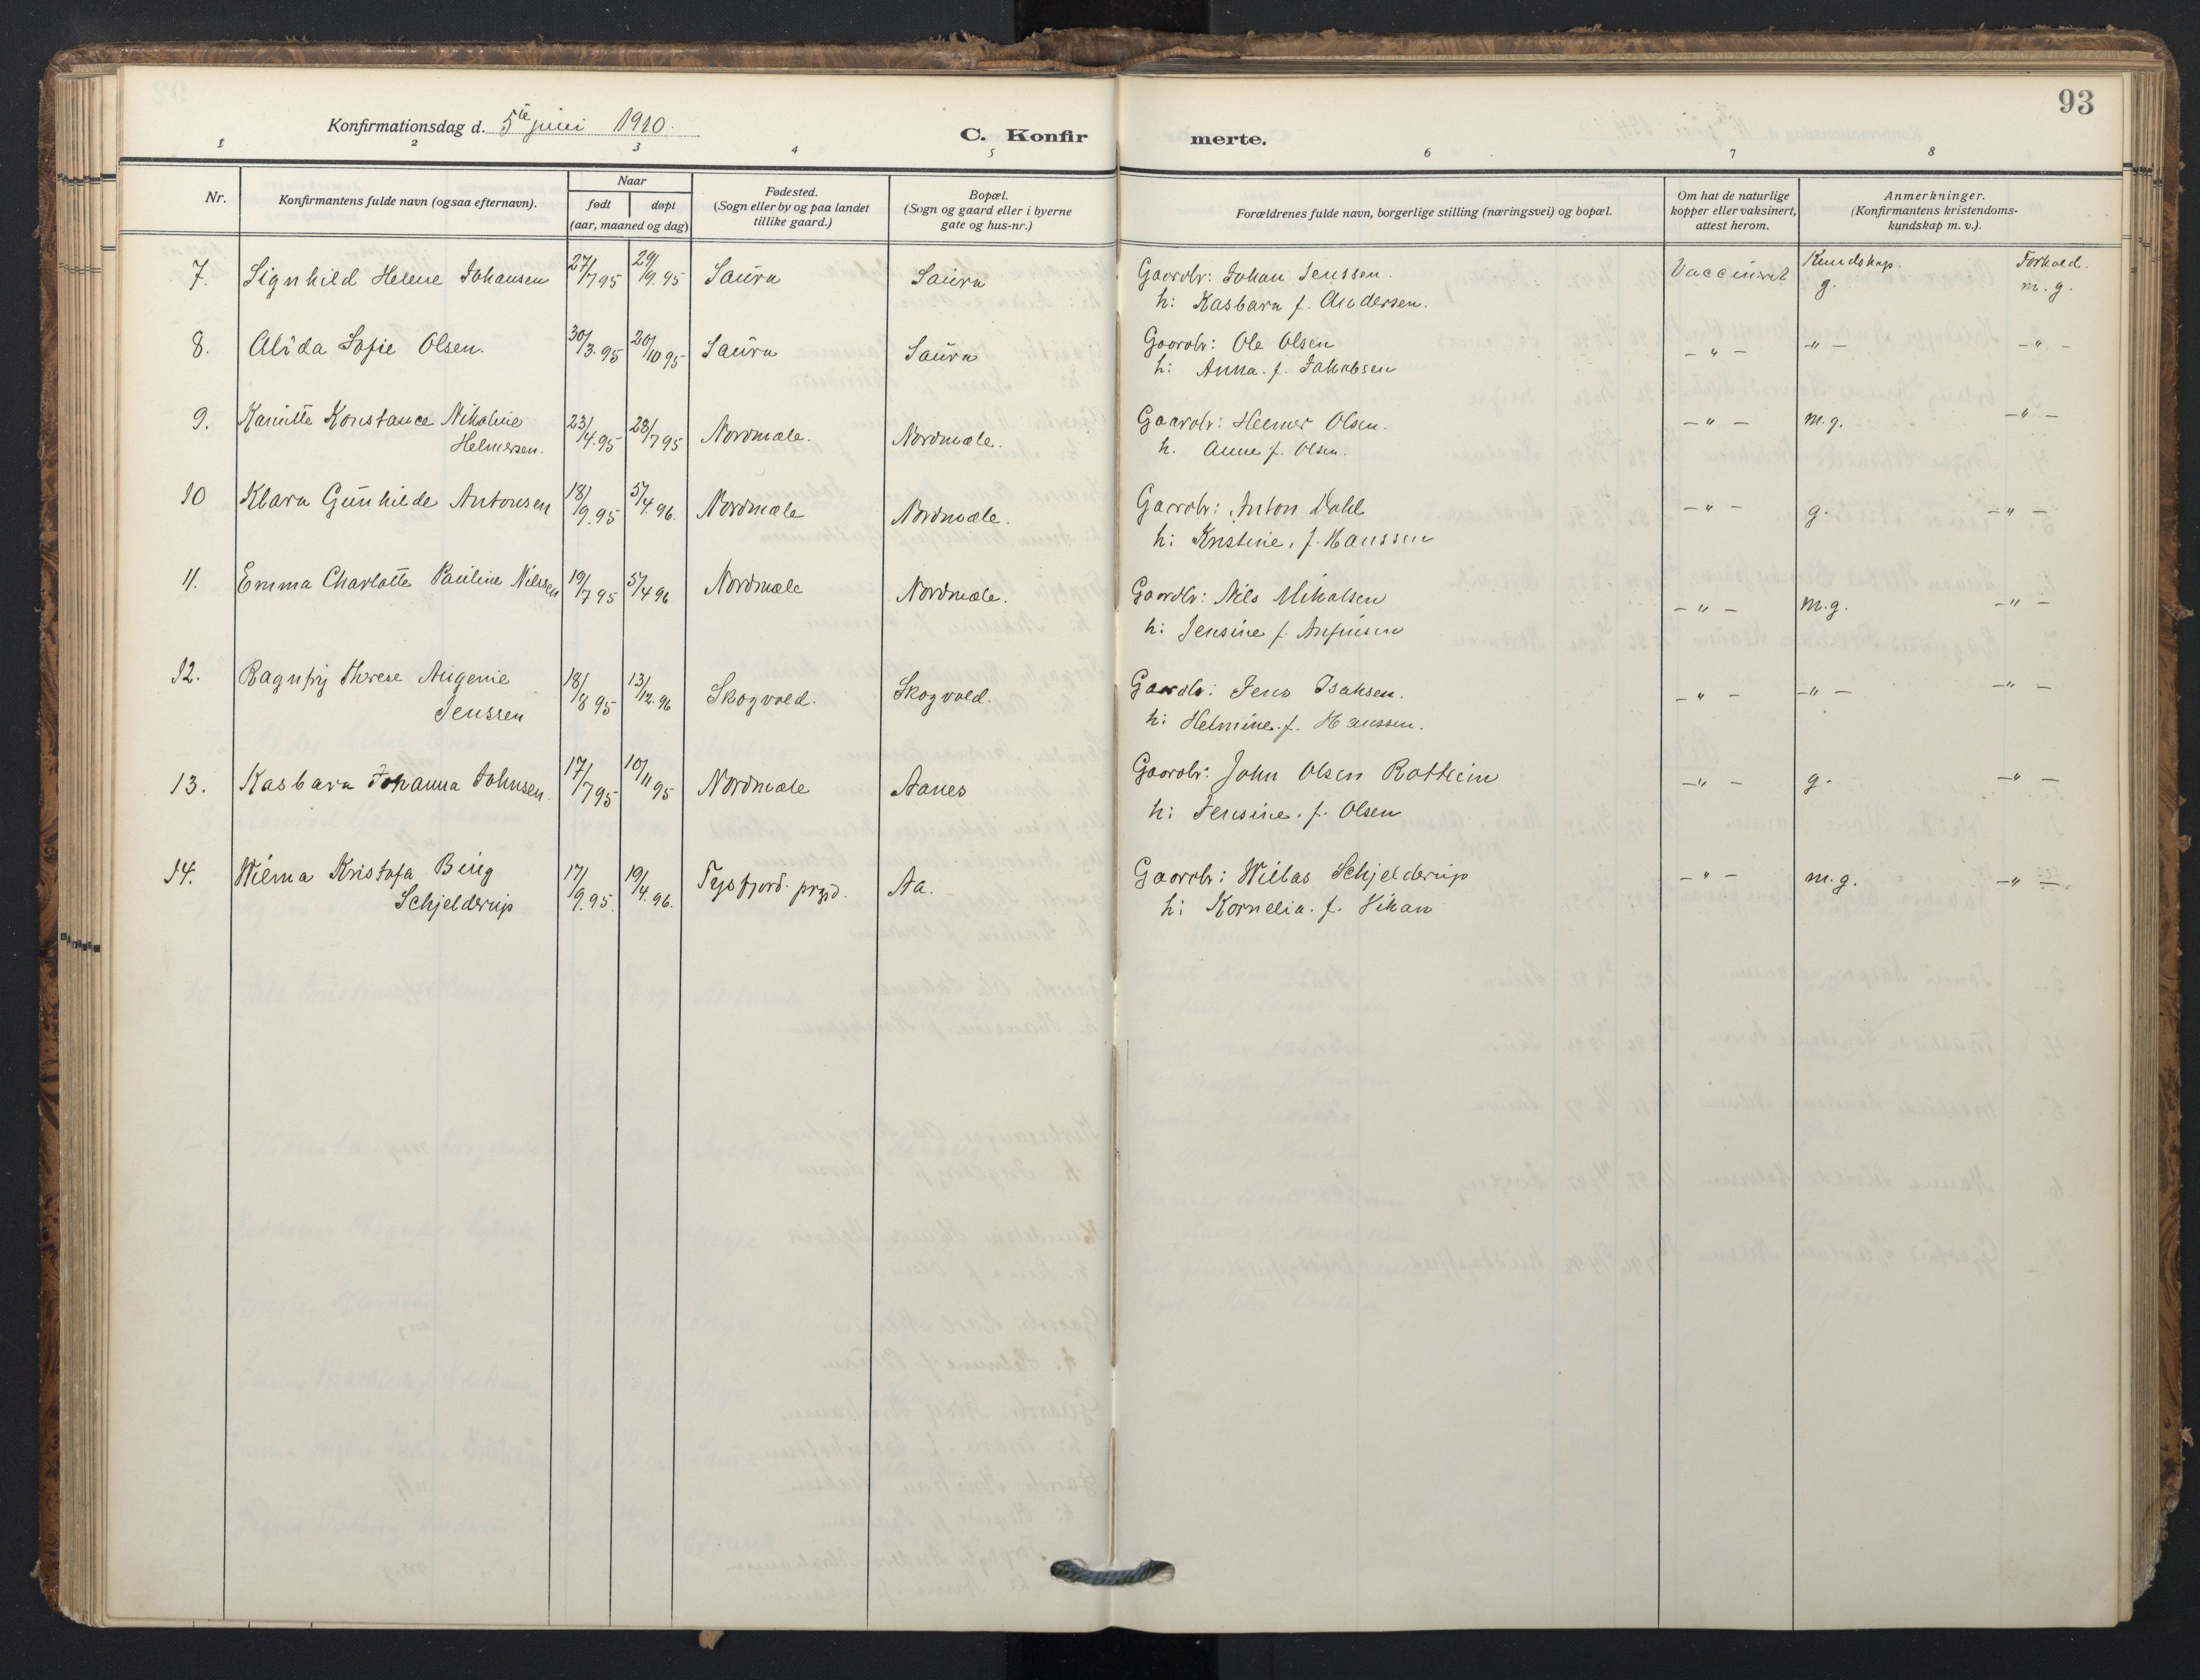 93
Konfirmationsdag d. 5te juni 1910.
C. Konfirmerte.
1 2 3 4 5 6 7 8
Nr. Konfirmantens fulde navn (ogsaa efternavn). Naar født døpt (aar, maaned og dag) Fødested. (Sogn eller by og paa landet tillike gaard.) Bopæl. (Sogn og gaard eller i byerne gate og hus-nr.) Forældrenes fulde navn, borgerlige stilling (næringsvei) og bopæl. Om hat de naturlige kopper eller vaksinert, attest herom. Anmerkninger. (Konfirmantens kristendoms-kundskap m. v.).
Kundskap. Forhold.
7. Signhild Helene Johansen 27/7 95 29/9. 95 Saura Saura Gaardbr: Johan Jenssen. Vaccineret g. m. g.
h: Kasbara f. Andersen.
8. Alida Sofie Olsen. 30/3. 95 20/10 95 Saura Saura Gaardbr: Ole Olsen - " - - " - - " -
h: Anna. f. Jakobsen
9. Kamilla Konstance Nikoline 23/4. 95 28/7 95 Nordmæle. Nordmæle. Gaardbr: Helmer Olsen. - " - m.g. - " -
Helmersen. h. Anne f. Olsen.
10 Klara Gunhilde Antonsen 18/9. 95 5/4. 96. Nordmæle Nordmæle. Gaardbr: Anton Dahl - " - g. - " -
h: Kristine, f. Hanssen
11. Emma Charlotte Pauline Nilssen 19/7 95 5/4 96 Nordmæle Nordmæle. Gaardbr: Nils Mikalsen - " - m.g. - " -
h: Jensine f. Anfinsen
12. Ragnfrij Therese Augenie 18/8 95 13/12. 96 Skogvold. Skogvold. Gaardbr: Jens Isaksen. - " - - " - - " -
Jenssen h: Helmine. f. Hanssen.
13. Kasbara Johanna Johnsen. 17/7 95 10/11 95 Nordmæle Aanes Gaardbr: John Olsen Rotheim - " - g. - " -
h: Jensine. f. Olsen
14. Wilma Kristofa Bing 17/9. 95. 19/4. 96. Tysfjord. prgd. Aa. Gaardbr: Willas Schjelderup - " - m.g. - " -
Schjelderup h: Kornelia. f. Vikan